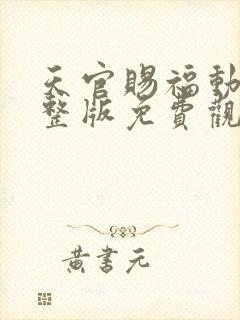 天官賜福動
整版免費觀
黃書元